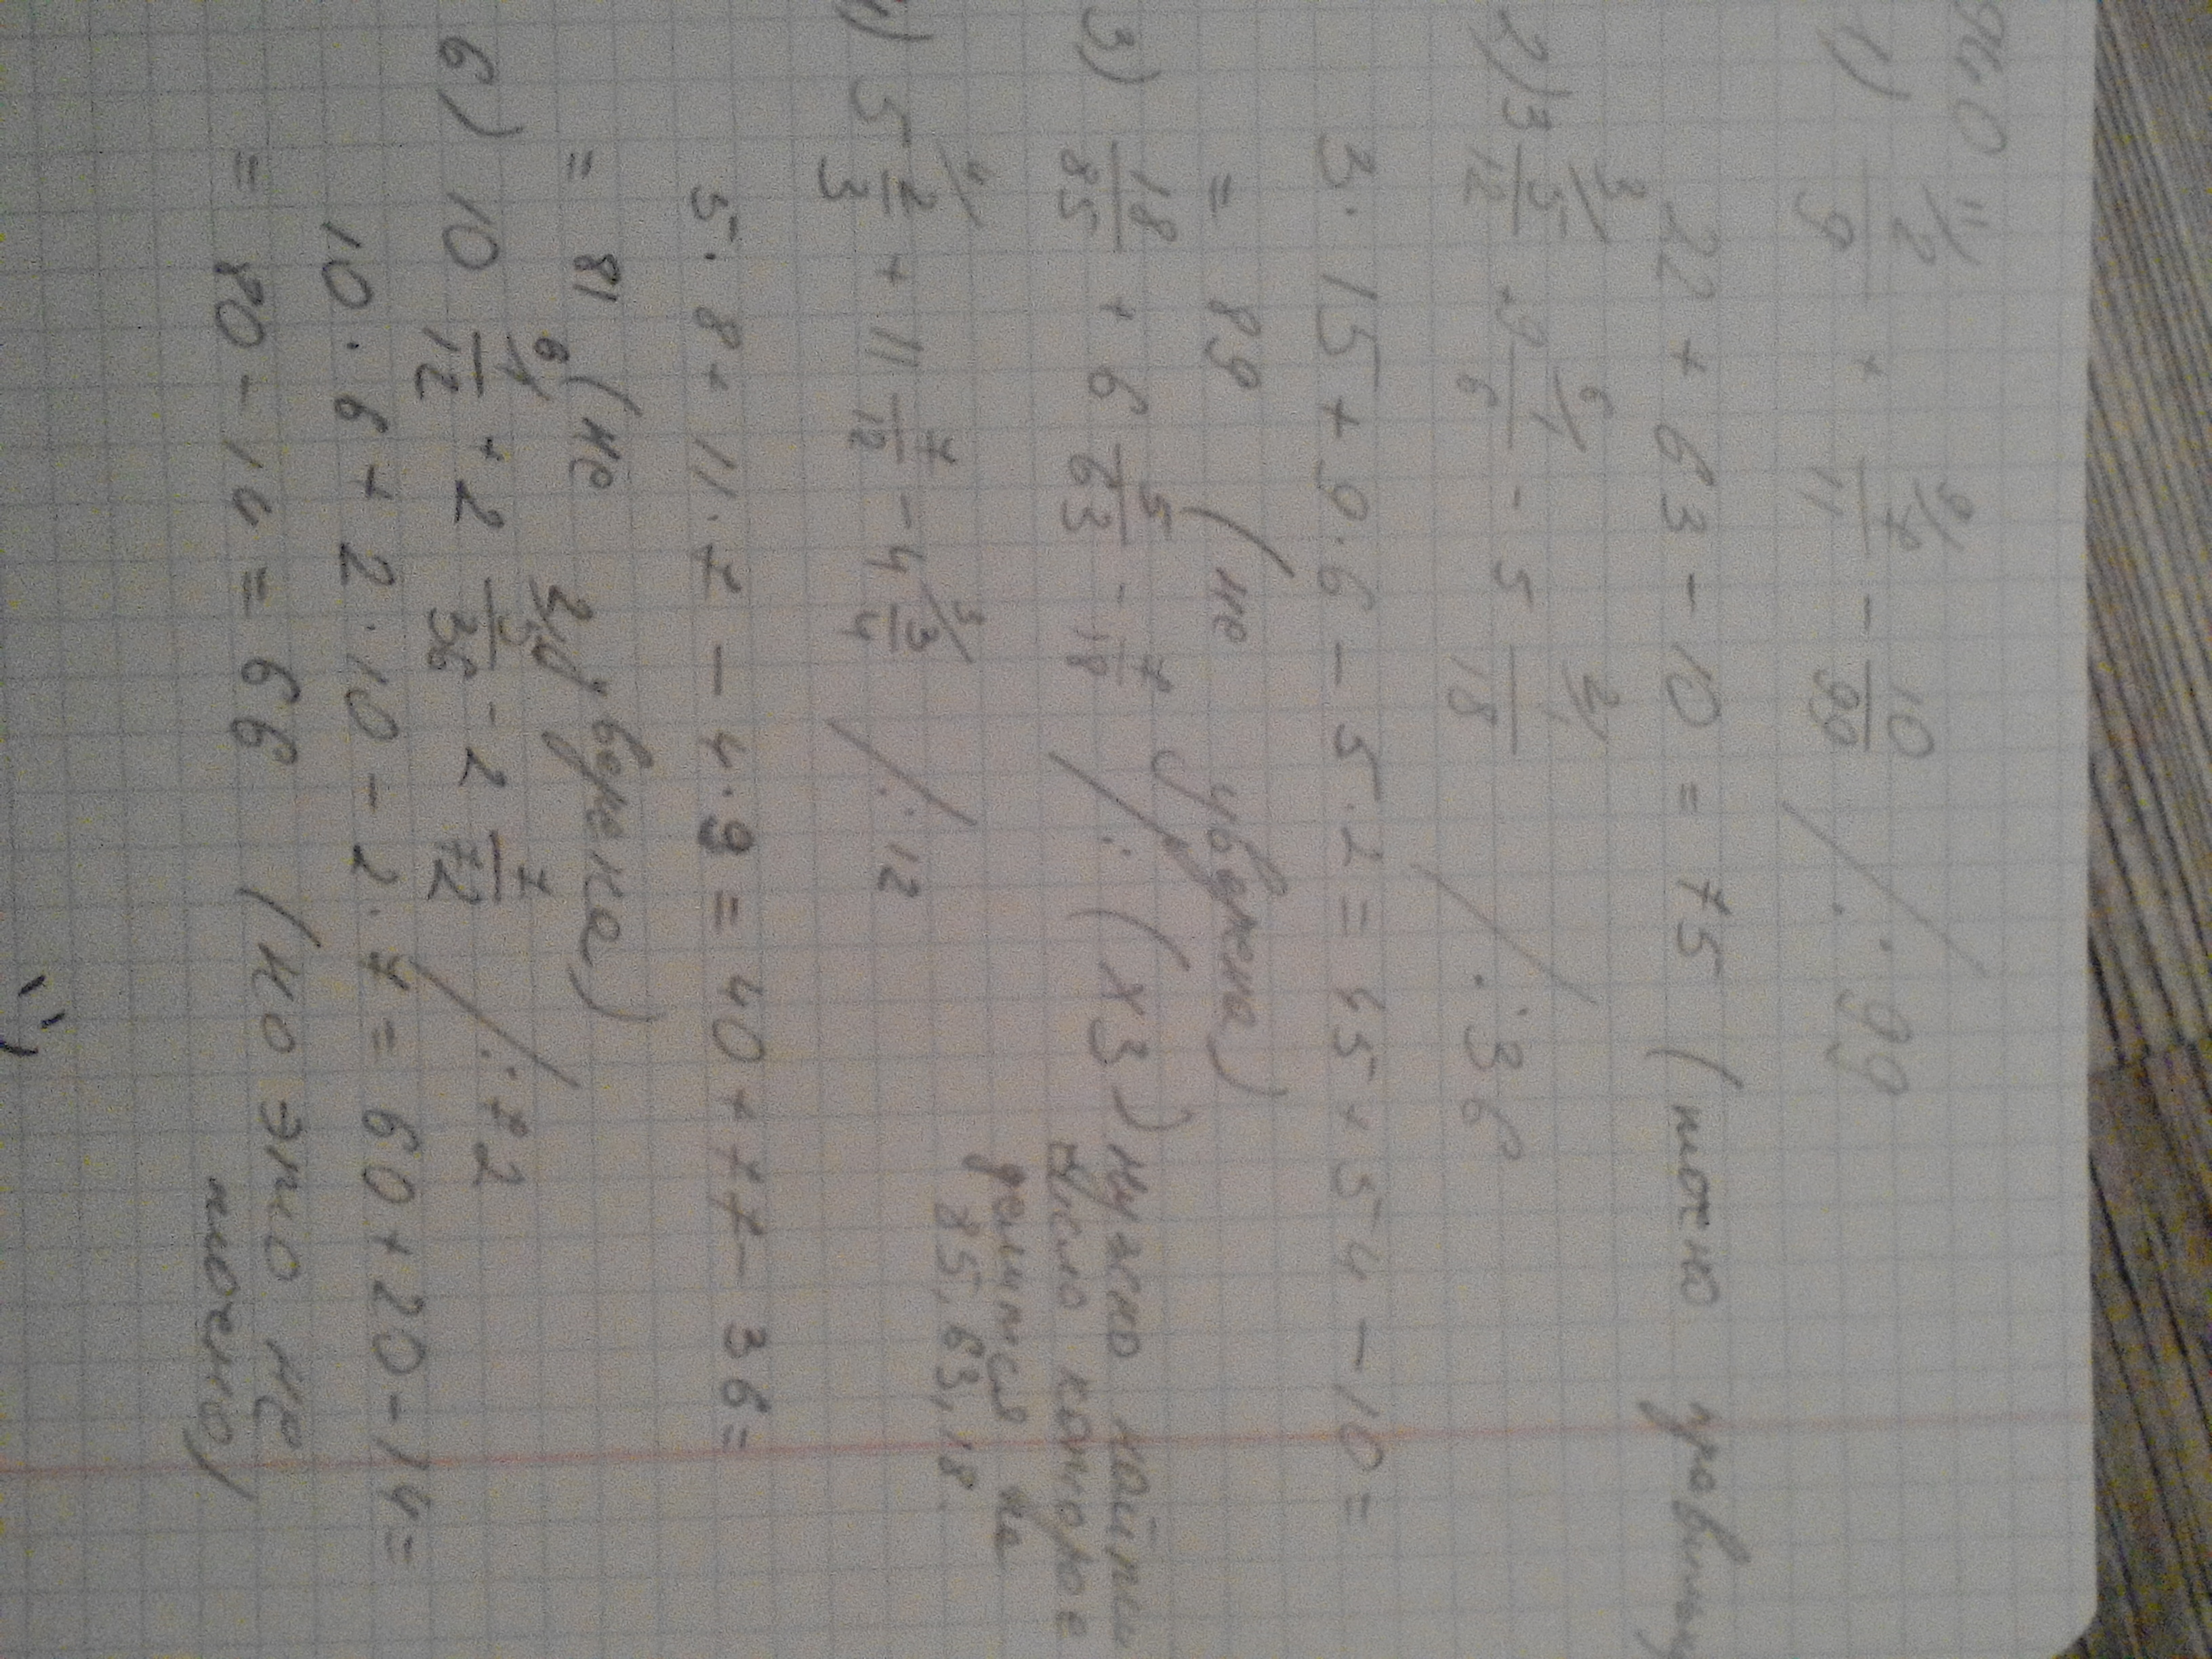 940
1) 11/2/9 + 9/7/11 - 10/99 /·:99
22 + 63 - 10 = 75 (точно
2) 3 3/5/12 · 9 6/1/6 - 5 2/1/18 /·:36
3·15 + 9·6 - 5·2 = 45 + 54 - 10 =
= 89 (не уверена)
3) 18/85 + 6 5/63 - 7/18 /: (х3) нужно найти
число которое
делится на
85, 63, 18
4) 5 4/2/3 + 11 7/12 - 4 3/3/4 /: 12
5·8 + 11·7 - 4·9 = 40 + 77 - 36 =
= 81 (не уверена)
6) 10 6/1/12 + 2 2/5/36 - 2 7/72 /·:72
10·6 + 2·10 - 2·7 = 60 + 20 - 14 =
= 80 - 14 = 66 (но это не
точно)